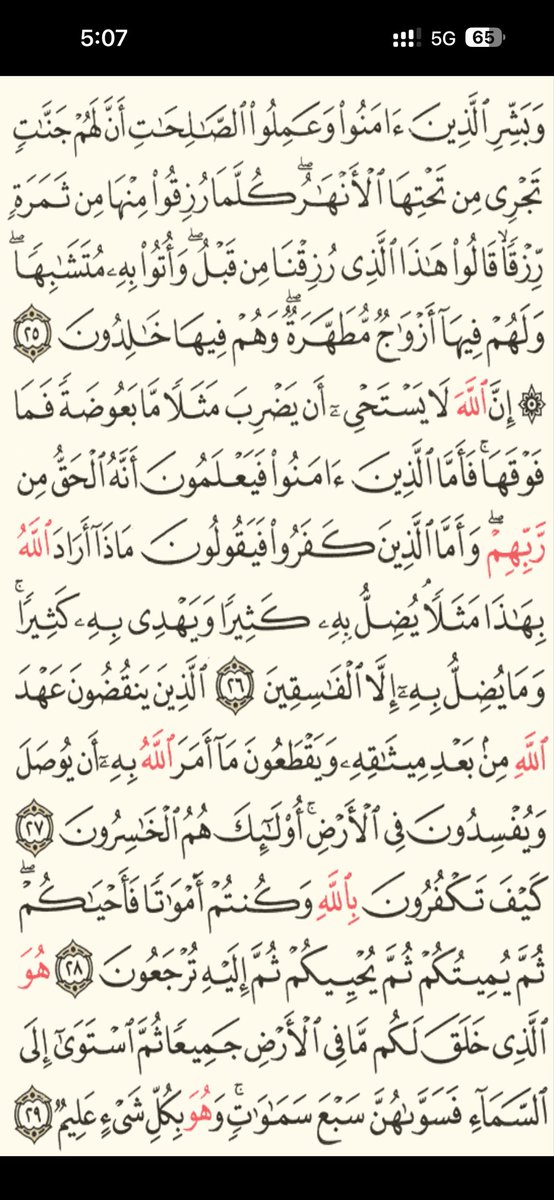 5:07 5G 65
وَبَشِّرِ ٱلَّذِينَ ءَامَنُوا۟ وَعَمِلُوا۟ ٱلصَّـٰلِحَـٰتِ أَنَّ لَهُمْ جَنَّـٰتٍ
تَجْرِى مِن تَحْتِهَا ٱلْأَنْهَـٰرُ ۖ كُلَّمَا رُزِقُوا۟ مِنْهَا مِن ثَمَرَةٍ
رِّزْقًا ۙ قَالُوا۟ هَـٰذَا ٱلَّذِى رُزِقْنَا مِن قَبْلُ ۖ وَأُتُوا۟ بِهِۦ مُتَشَـٰبِهًا ۖ
وَلَهُمْ فِيهَآ أَزْوَٰجٌ مُّطَهَّرَةٌ ۖ وَهُمْ فِيهَا خَـٰلِدُونَ ٢٥
۞ إِنَّ ٱللَّهَ لَا يَسْتَحْىِۦٓ أَن يَضْرِبَ مَثَلًا مَّا بَعُوضَةً فَمَا
فَوْقَهَا ۚ فَأَمَّا ٱلَّذِينَ ءَامَنُوا۟ فَيَعْلَمُونَ أَنَّهُ ٱلْحَقُّ مِن
رَّبِّهِمْ ۖ وَأَمَّا ٱلَّذِينَ كَفَرُوا۟ فَيَقُولُونَ مَاذَآ أَرَادَ ٱللَّهُ
بِهَـٰذَا مَثَلًا ۘ يُضِلُّ بِهِۦ كَثِيرًا وَيَهْدِى بِهِۦ كَثِيرًا ۚ
وَمَا يُضِلُّ بِهِۦٓ إِلَّا ٱلْفَـٰسِقِينَ ٢٦ ٱلَّذِينَ يَنقُضُونَ عَهْدَ
ٱللَّهِ مِنۢ بَعْدِ مِيثَـٰقِهِۦ وَيَقْطَعُونَ مَآ أَمَرَ ٱللَّهُ بِهِۦٓ أَن يُوصَلَ
وَيُفْسِدُونَ فِى ٱلْأَرْضِ ۚ أُو۟لَـٰٓئِكَ هُمُ ٱلْخَـٰسِرُونَ ٢٧
كَيْفَ تَكْفُرُونَ بِٱللَّهِ وَكُنتُمْ أَمْوَٰتًا فَأَحْيَـٰكُمْ ۖ
ثُمَّ يُمِيتُكُمْ ثُمَّ يُحْيِيكُمْ ثُمَّ إِلَيْهِ تُرْجَعُونَ ٢٨ هُوَ
ٱلَّذِى خَلَقَ لَكُم مَّا فِى ٱلْأَرْضِ جَمِيعًا ثُمَّ ٱسْتَوَىٰٓ إِلَى
ٱلسَّمَآءِ فَسَوَّىٰهُنَّ سَبْعَ سَمَـٰوَٰتٍ ۚ وَهُوَ بِكُلِّ شَىْءٍ عَلِيمٌ ٢٩